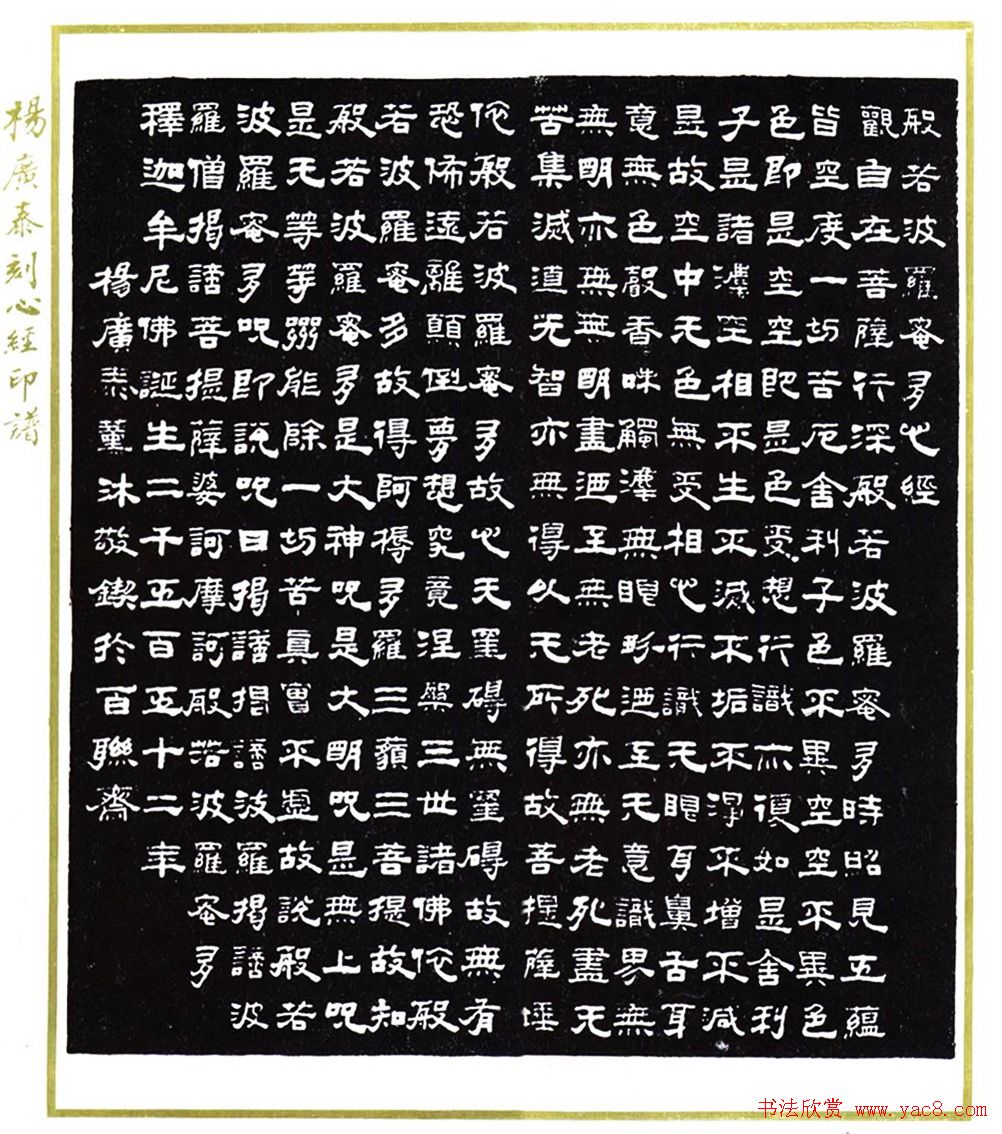 般若波羅蜜多心經
觀自在菩薩行深般若波羅蜜多時昭見五蘊
皆空度一切苦厄舍利子色不異空空不異色
色即是空空即是色受想行識亦復如是舍利
子是諸法空相不生不滅不垢不淨不增不減
是故空中无色無受相心行識无眼耳鼻舌耳
意無色聲香味觸法無眼界迺至无意識界無
無明亦無無明盡迺至無老死亦無老死盡无
苦集滅道无智亦無得以无所得故菩提薩埵
依般若波羅蜜多故心无罣碍無罣碍故無有
恐怖遠離顛倒夢想究竟涅槃三世諸佛依般
若波羅蜜多故得阿耨多羅三藐三菩提故知
般若波羅蜜多是大神咒是大明咒是無上咒
是无等等咒能除一切苦真實不虛故說般若
波羅蜜多咒即說咒曰揭諦揭諦波羅揭諦波
羅僧揭諦菩提薩婆訶摩訶般若波羅蜜多
釋迦牟尼佛誕生二千五百五十二年
楊廣泰薰沐敬鍥於百聯齋
楊廣泰刻心經印譜
书法欣赏 www.yac8.com